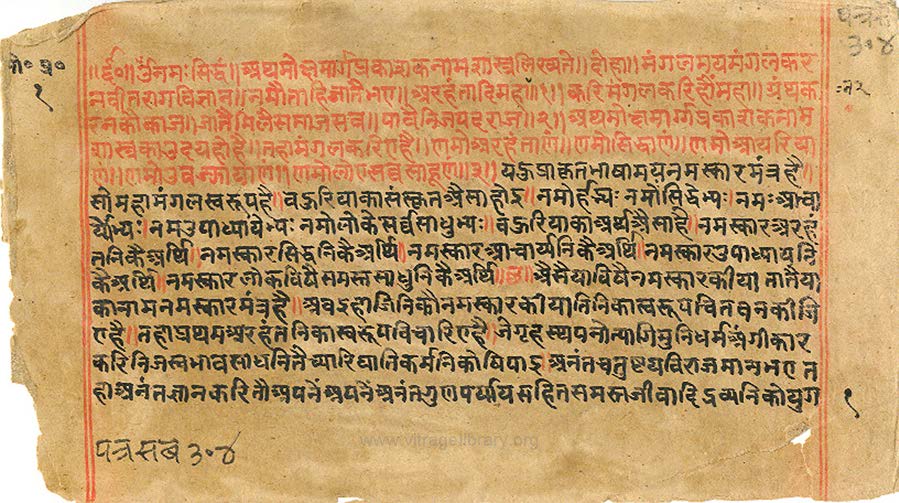 पत्र
३०४
मो० प्र०
१
॥६०॥ ॐ नमः सिद्धं॥ अथ मोक्षमार्ग प्रकाशक नाम शास्त्र लिख्यते॥ दोहा॥ मंगलमय मंगल कर
न वीतराग विज्ञान॥ नमौं ताहि जातै भए॥ अरहंतादि महान॥१॥ करि मंगल करिहौं महा॥ ग्रंथ क
रन कौ काज॥ जातै मिलै समाज सब॥ पावै निज पद राज॥२॥ अथ मोक्षमार्ग प्रकाशक नाम
शास्त्र का उदय हो है॥ तहां मंगल करिए है॥ णमो अरहंताणं॥ णमो सिद्धाणं॥ णमो आयरिया
णं॥ णमो उवज्झायाणं॥ णमो लोए सव्वसाहूणं॥ यहु प्राकृत भाषामय नमस्कार मंत्र है
सो महामंगल स्वरूप है॥ बहुरि याका संस्कृत औसा हो इ॥ नमोर्हद्भ्यः नमो सिद्धेभ्यः नमः आचा
र्येभ्यः नम उपाध्यायेभ्यः नमो लोके सर्वसाधुभ्यः॥ बहुरि याका अर्थ औसा है॥ नमस्कार अरहं
तनि कै अर्थि॥ नमस्कार सिद्धनि कै अर्थि॥ नमस्कार आचार्यनि कै अर्थि॥ नमस्कार उपाध्यायनि
कै अर्थि॥ नमस्कार लोक विषै समस्त साधुनि कै अर्थि॥ औसै या विषै नमस्कार कीया तातै या
का नाम नमस्कार मंत्र है॥ अब इहां जिनि कौ नमस्कार कीया तिनि का स्वरूप चिंतवन कीजि
ए है॥ तहां प्रथम अरहंतनि का स्वरूप विचारिए है॥ जे गृहस्थपनो त्यागि मुनिधर्म अंगीकार
करि निज स्वभाव साधन तै च्यारि घाति कर्मनि कौ षिपाइ अनंत चतुष्टय विराजमान भए त
हां अनंत ज्ञान करि तौ अपने अपने अनंत गुण पर्याय सहित समस्त जीवादि द्रव्यनि को युग
१
www.vitragelibrary.org
पत्र सब ३०४